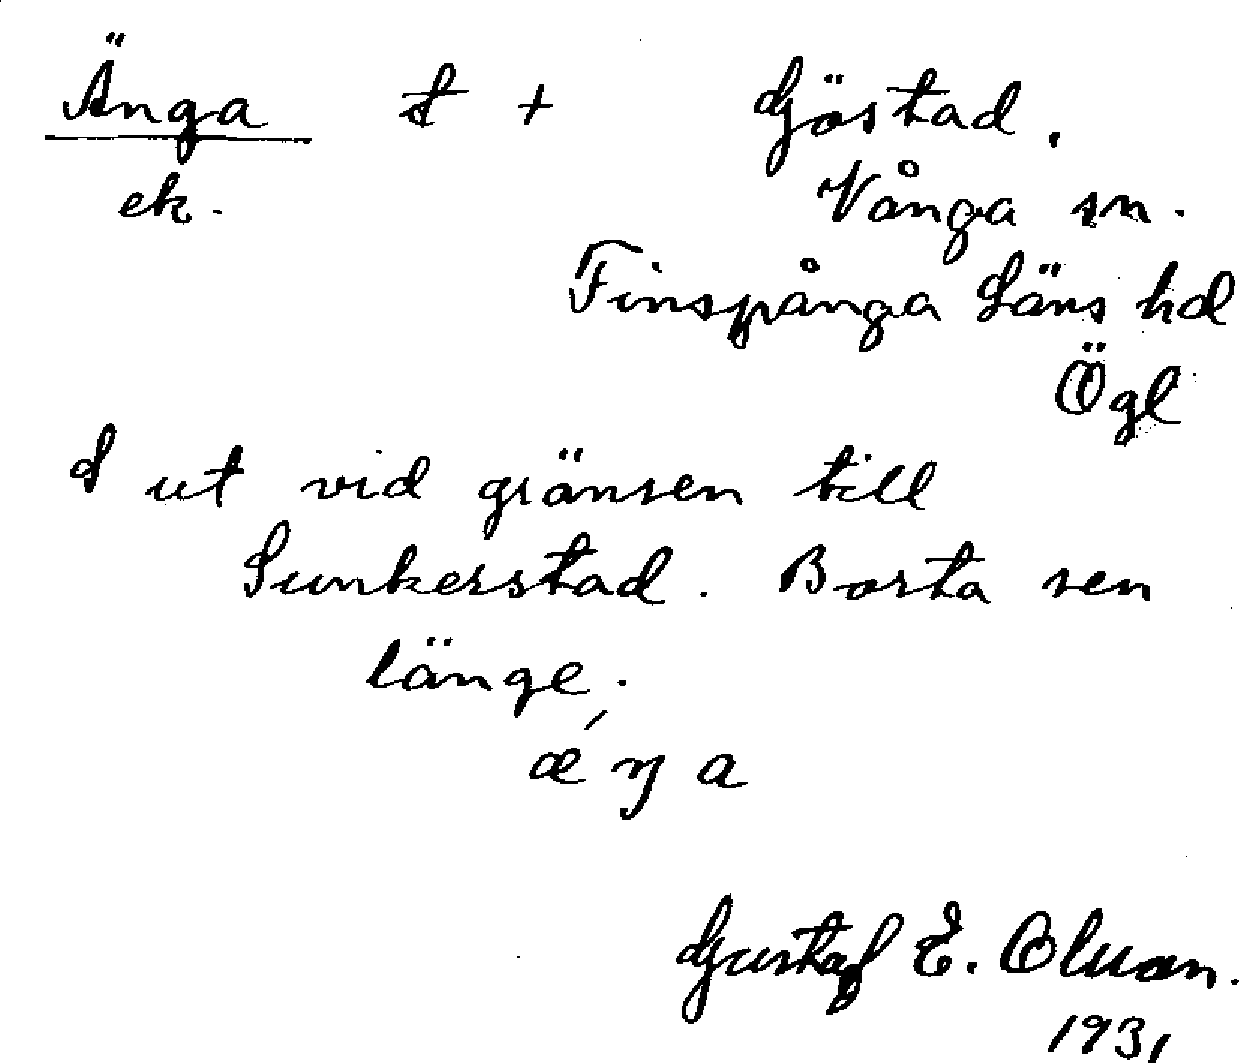 Änga t + Gjöstad.
ek.
Vånga sn.
Finspånga Läns hd
Ögl
I ut vid gränsen till
Sunkerstad. Borta sen
länge.
ǽ ŋ a
Gustaf E.
1931